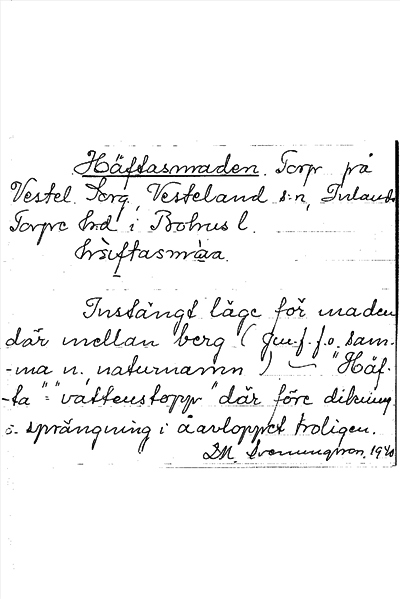 Häftasmaden. Torp på
Vestel. Torg, Vesteland s:n, Inlands
Torpe hd i Bohusl.
hä̀ftasmàa.
Instängt läge för maden
där mellan berg (Jmf. f.o. sam-
-ma n. naturnamn) — "Häf-
-ta" = "vattenstopp" där före dikning
o. sprängning i åavloppet troligen.
D.M. Svenungsson, 1940